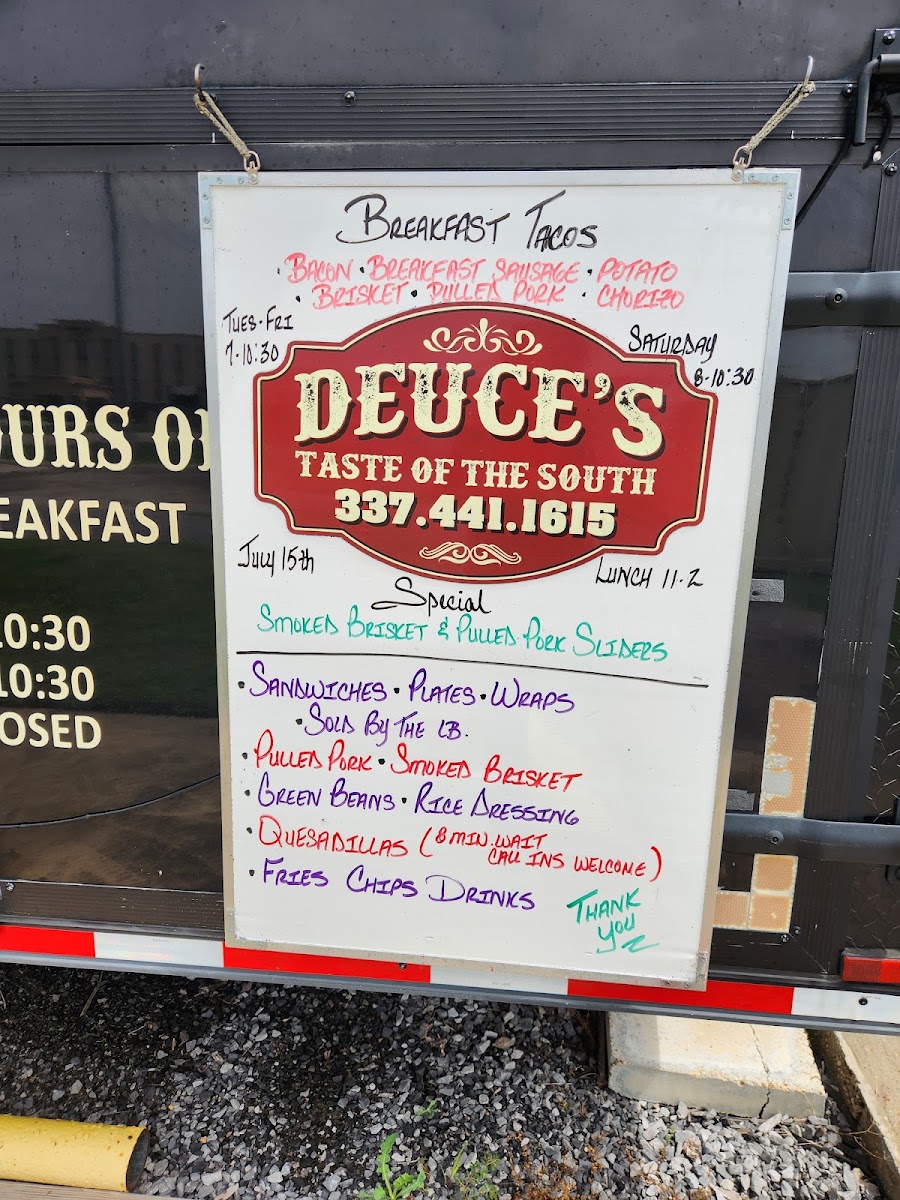 BREAKFAST TACOS
· BACON · BREAKFAST SAUSAGE · POTATO
· BRISKET · PULLED PORK · CHORIZO
TUES-FRI
7-10:30
SATURDAY
8-10:30
DEUCE'S
TASTE OF THE SOUTH
337.441.1615
July 15th
LUNCH 11-2
Special
SMOKED BRISKET & PULLED PORK SLIDERS
· SANDWICHES · PLATES · WRAPS
· SOLD BY THE LB.
· PULLED PORK · SMOKED BRISKET
· GREEN BEANS · RICE DRESSING
· QUESADILLAS (8 MIN. WAIT
CALL INS WELCOME)
· FRIES CHIPS DRINKS
THANK
YOU
OURS O
EAKFAST
10:30
10:30
OSED